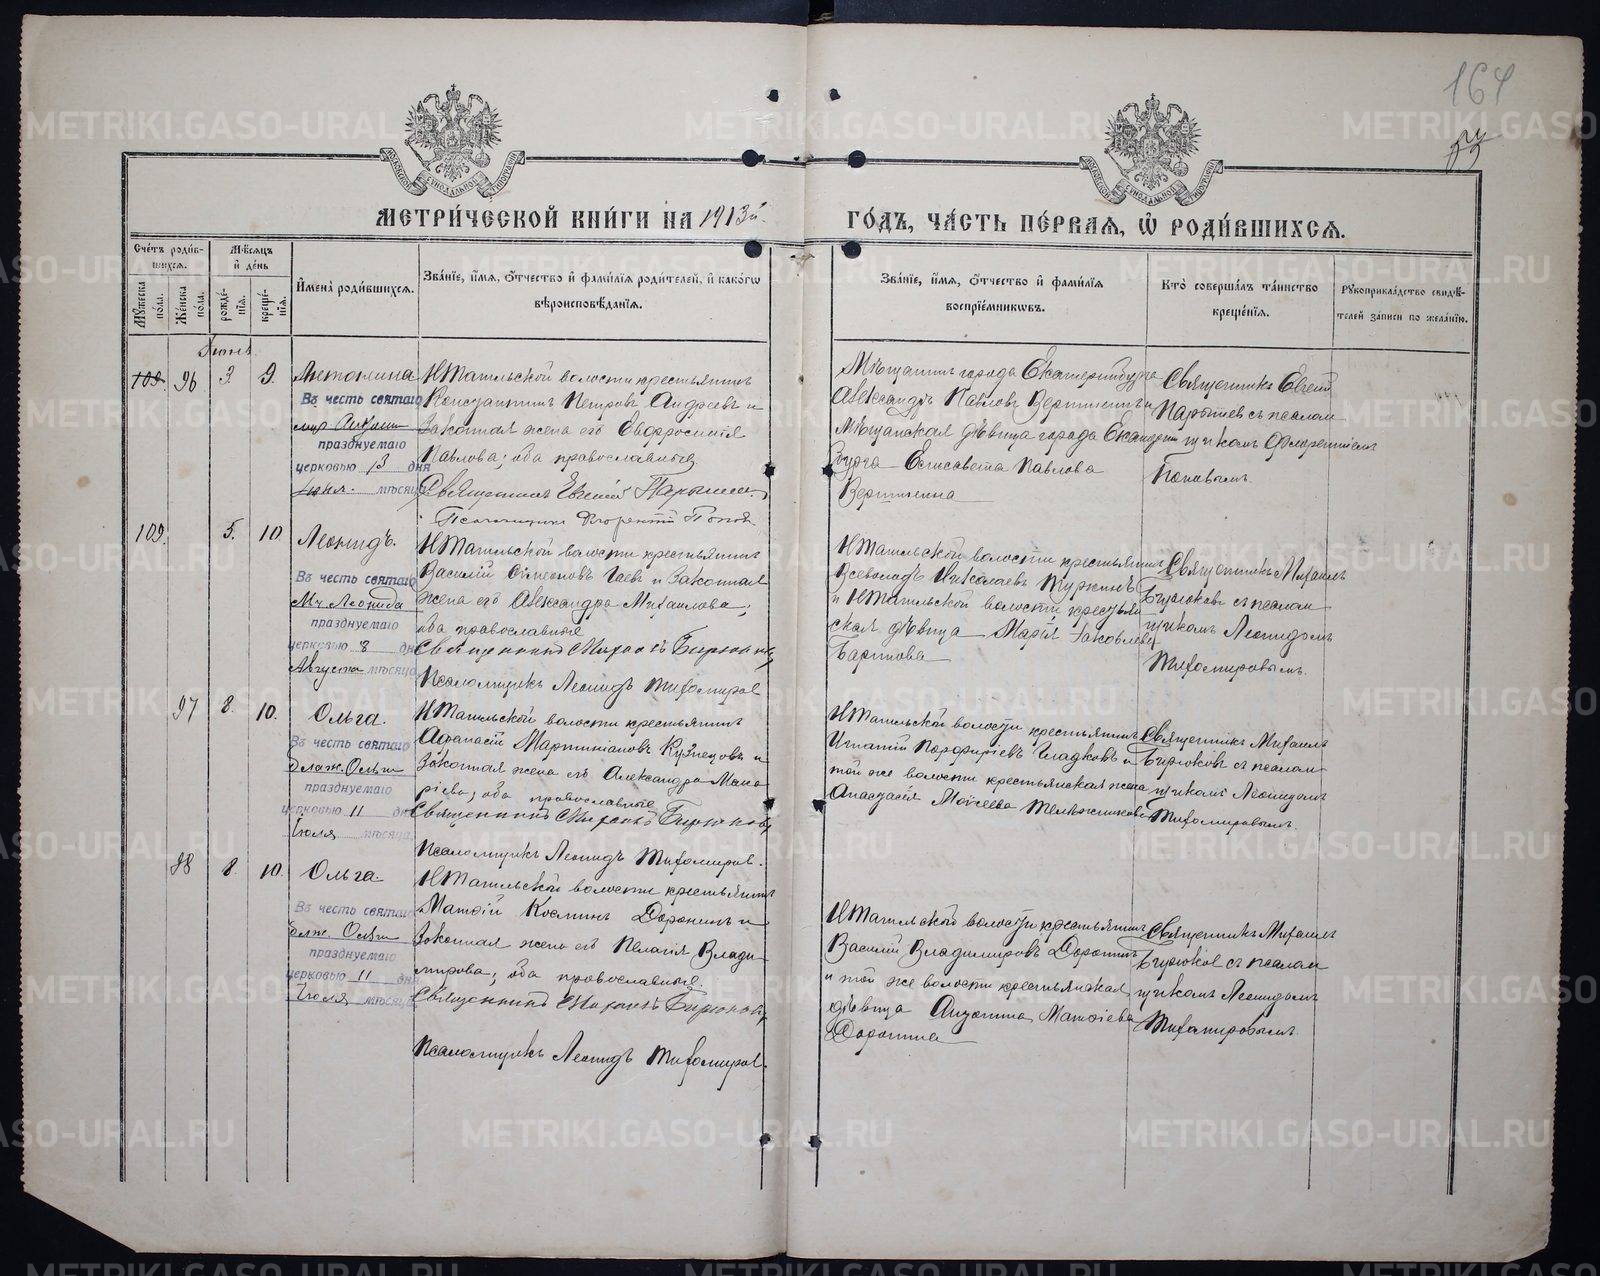 164
53
МЕТРИ́ЧЕСКОЙ КНИ́ГИ НА 1913й
ГО́ДЪ, ЧА́СТЬ ПЕ́РВАѦ, Ѡ҆ РОДИ́ВШИХСѦ.
Сче́тъ роди́в-
шихсѧ.
Мѣ́сѧцъ
и҆ де́нь
Мꙋ́жеска
по́ла.
Же́нска
по́ла.
рожде́-
нїѧ.
креще́-
нїѧ.
И҆мена̀ роди́вшихсѧ.
Зва́нїе, и҆́мѧ, ѻ҆́тчество и҆ фами́лїѧ роди́телей, и҆ како́гѡ
вѣроисповѣ́данїѧ.
Зва́нїе, и҆́мѧ, ѻ҆́тчество и҆ фами́лїѧ
воспрїе́мникѡвъ.
Кто̀ соверша́лъ та́инство
креще́нїѧ.
Рꙋкоприкла́дство свидѣ́-
телей за́писи по жела́нїю.
Іюнь.
109. 96 3. 9. Антонина
Въ честь святаго
празднуемаго
церковью 13 дня
Іюня. мѣсяца
НТагильской волости крестьянинъ
Константинъ Петровъ Андреевъ и
законная жена его Евфросинія
Павлова; оба православные
Священникъ Евгеній
Псаломщикъ Флорентій Поповъ
Мѣщанинъ города Екатеринбурга
Александръ Павловъ Вершининъ и
Мѣщанская дѣвица города Екатерин
бурга Елисавета Павлова
Вершинина
Священникъ Евгеній
съ псалом
щикомъ Флорентіемъ
Поповымъ.
109. 5. 10. Леонидъ.
Въ честь святаго
Мч. Леонида
празднуемаго
церковью 8 дня
Августа мѣсяца
НТагильской волости крестьянинъ
Василій Симеоновъ и законная
жена его Александра Михаилова;
оба православные
Священникъ Михаилъ Бирюковъ
Псаломщикъ Леонидъ Тихомировъ
НТагильской волости крестьянинъ
Всеволодъ Николаевъ
и НТагильской волости крестьян
ская дѣвица Марія Іаковлева
Баринова
Священникъ Михаилъ
Бирюковъ съ псалом
щикомъ Леонидомъ
Тихомировымъ.
97 8. 10. Ольга.
Въ честь святаго
блаж. Ольги
празднуемаго
церковью 11 дня
Іюля мѣсяца
НТагильской волости крестьянинъ
Афанасій Мартиніановъ Кузнецовъ и
законная жена его Александра Мака
ріева; оба православные
Священникъ Михаилъ Бирюковъ
Псаломщикъ Леонидъ Тихомировъ.
НТагильской волости крестьянинъ
Игнатій Порфиріевъ Гладковъ и
той же волости крестьянская жена
Анастасія Моисеева
Священникъ Михаилъ
Бирюковъ съ псалом
щикомъ Леонидомъ
Тихомировымъ.
98 8. 10. Ольга.
Въ честь святаго
блж. Ольги
празднуемаго
церковью 11 дня
Іюля мѣсяца
НТагильской волости крестьянинъ
Матфій Косминъ Доронинъ и
законная жена его Пелагія Влади
мирова; оба православные.
Священникъ Михаилъ Бирюковъ
Псаломщикъ Леонидъ Тихомировъ.
НТагильской волости крестьянинъ
Василій Владимировъ Доронинъ
и той же волости крестьянская
дѣвица Матфіева
Доронина
Священникъ Михаилъ
Бирюковъ съ псалом
щикомъ Леонидомъ
Тихомировымъ.
METRIKI.GASO-URAL.RU